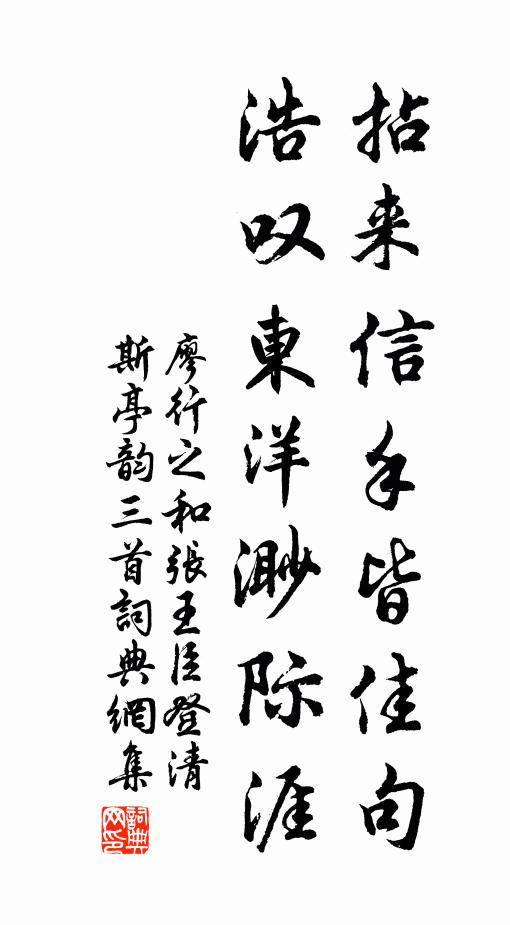 拈来信手皆佳句
浩叹東洋渺际涯
廖行之和張王臣登清
斯亭韵三首詞典網集
詞典网印